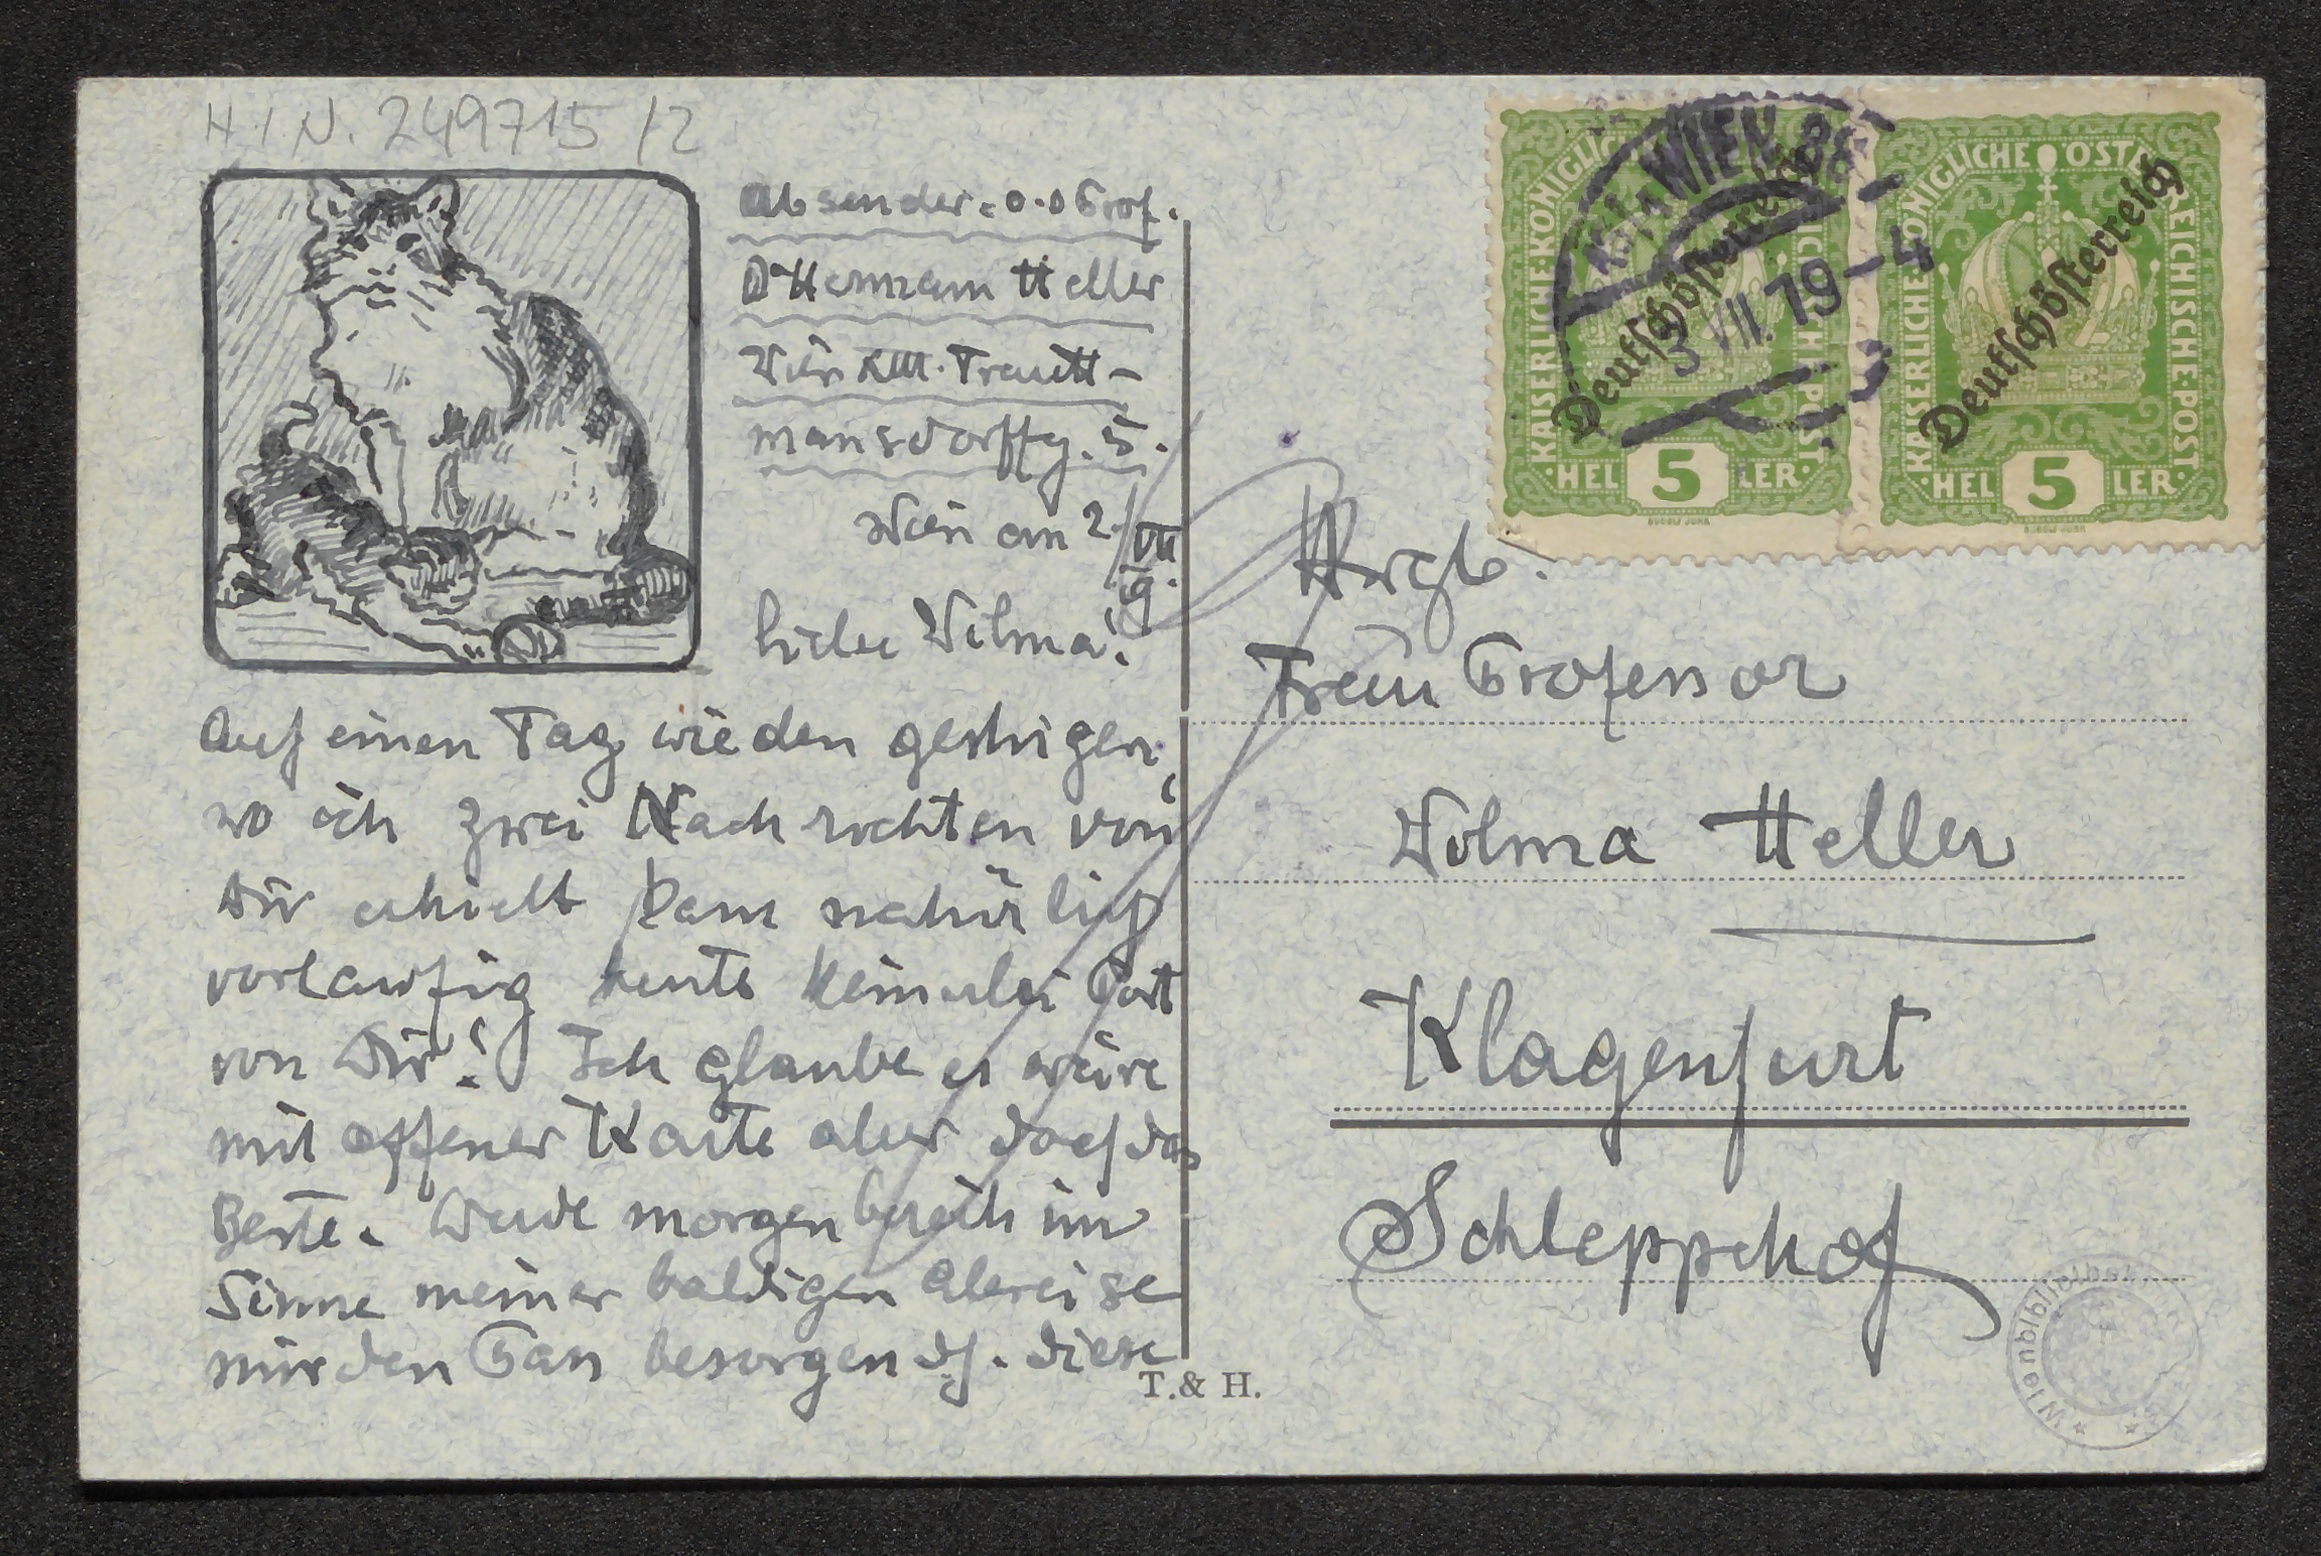 H.I.N. 249715/2
Absender: o.ö Prof.
Dr Hermann Heller
Wien XIII. Trautt-
mansdorffg. 5.
Wien am 2/VII 19.
Liebe Wilma!
Auf einen Tag wie den gestrigen,
wo ich zwei Nachrichten von
Dir erhielt kam natürlich
vorläufig heute keinerlei Post
von Dir! Ich glaube es wäre
mit offener Karte aber doch das
Beste. Werde morgen bereits im
Sinne meiner baldigen Abreise
mir den Pass besorgen df. diese
T. & H.
KAISERLICHE·KÖNIGLICHE ÖSTERREICHISCHE·POST
Deutschösterreich
HEL 5 LER
RUDOLF JUNK
KAISERLICHE·KÖNIGLICHE ÖSTERREICHISCHE·POST
Deutschösterreich
HEL 5 LER
RUDOLF JUNK
WIEN 88
3 VII. 19 - 4
Frau Professor
Wilma Heller
Klagenfurt
Schlepphof
Wienbibliothek